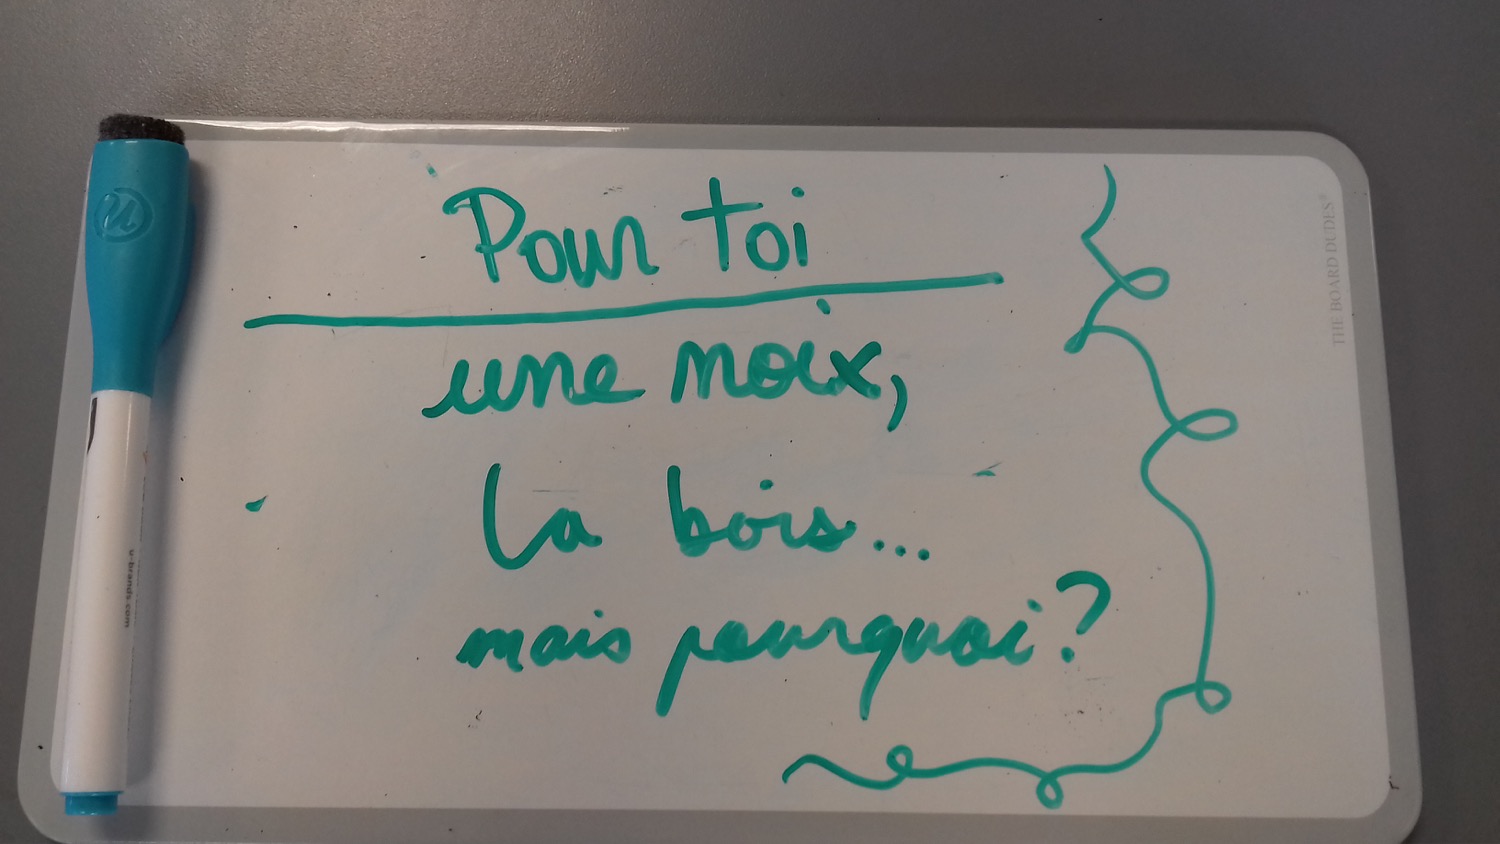 Pour toi
une noix,
la bois...
mais pourquoi?
THE BOARD DUDES®
u-brands.com